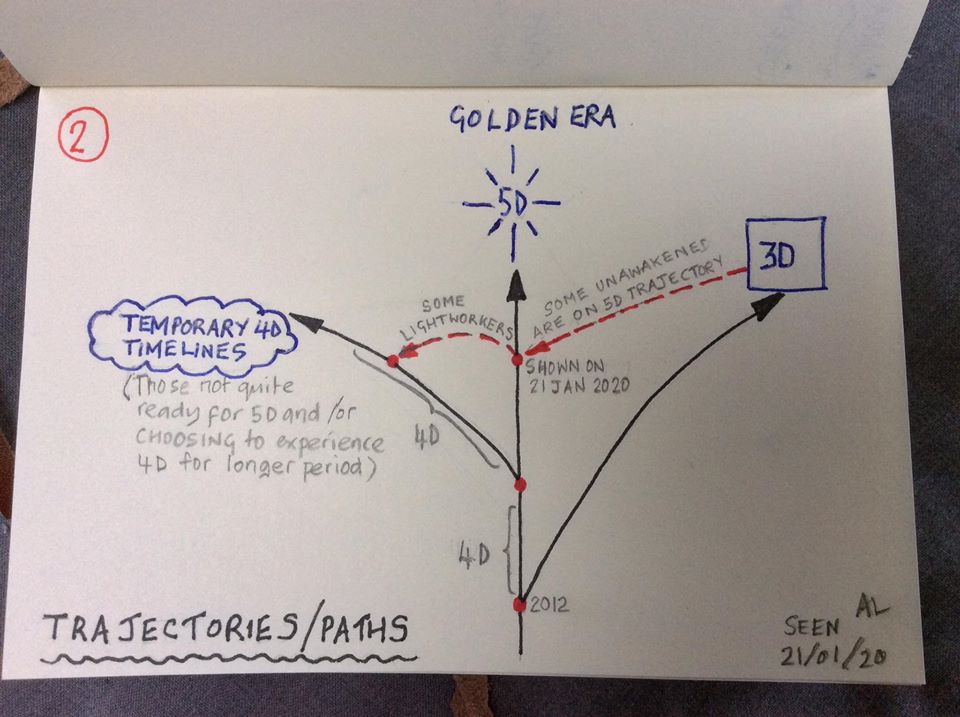 2
GOLDEN ERA
5D
3D
SOME UNAWAKENED
ARE ON 5D TRAJECTORY
SOME
LIGHTWORKERS
TEMPORARY 4D
TIMELINES
(Those not quite
ready for 5D and/or
CHOOSING to experience
4D for longer period)
SHOWN ON
21 JAN 2020
4D
4D
2012
TRAJECTORIES/PATHS
AL
SEEN
21/01/20